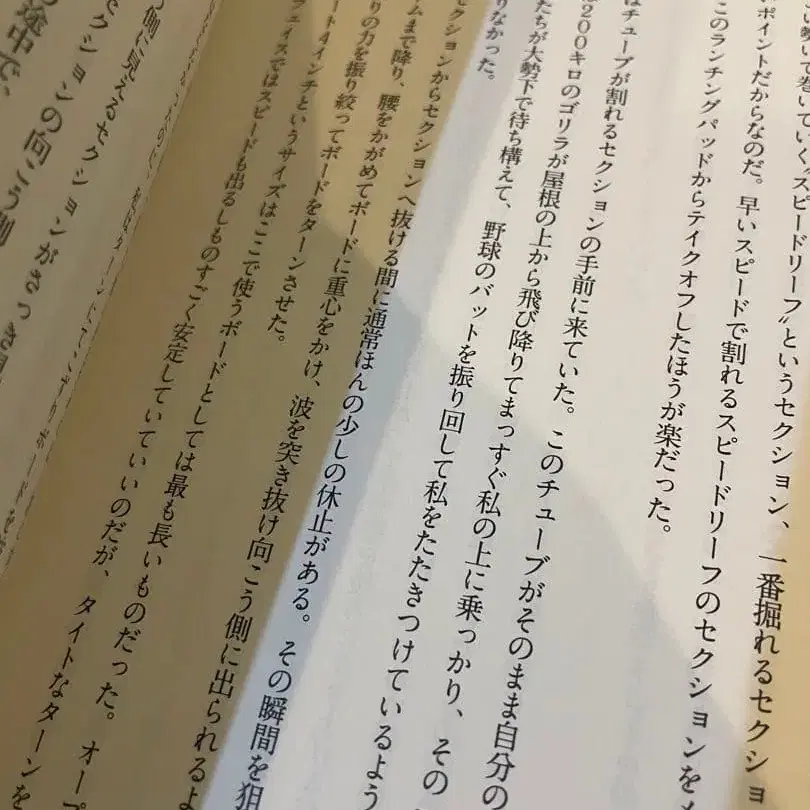 勢いで巻いていく“スピードリーフ”というセクション、一番掘れるセクショ
ポイントだからなのだ。早いスピードで割れるスピードリーフのセクションを
このランチングパッドからテイクオフしたほうが楽だった。
はチューブが割れるセクションの手前に来ていた。このチューブがそのまま自分の
200キロのゴリラが屋根の上から飛び降りてまっすぐ私の上に乗っかり、その
たちが大勢下で待ち構えて、野球のバットを振り回して私をたたきつけているよう
りなかった。
セクションからセクションへ抜ける間に通常ほんの少しの休止がある。その瞬間を狙
ムまで降り、腰をかがめてボードに重心をかけ、波を突き抜け向こう側に出られるよ
りの力を振り絞ってボードをターンさせた。
ート4インチというサイズはここで使うボードとしては最も長いものだった。オープ
フェイスではスピードも出るしものすごく安定していていいのだが、タイトなターンを
う側に見えるセクション
セクションの向こう側
途中で、
セクションがさっき